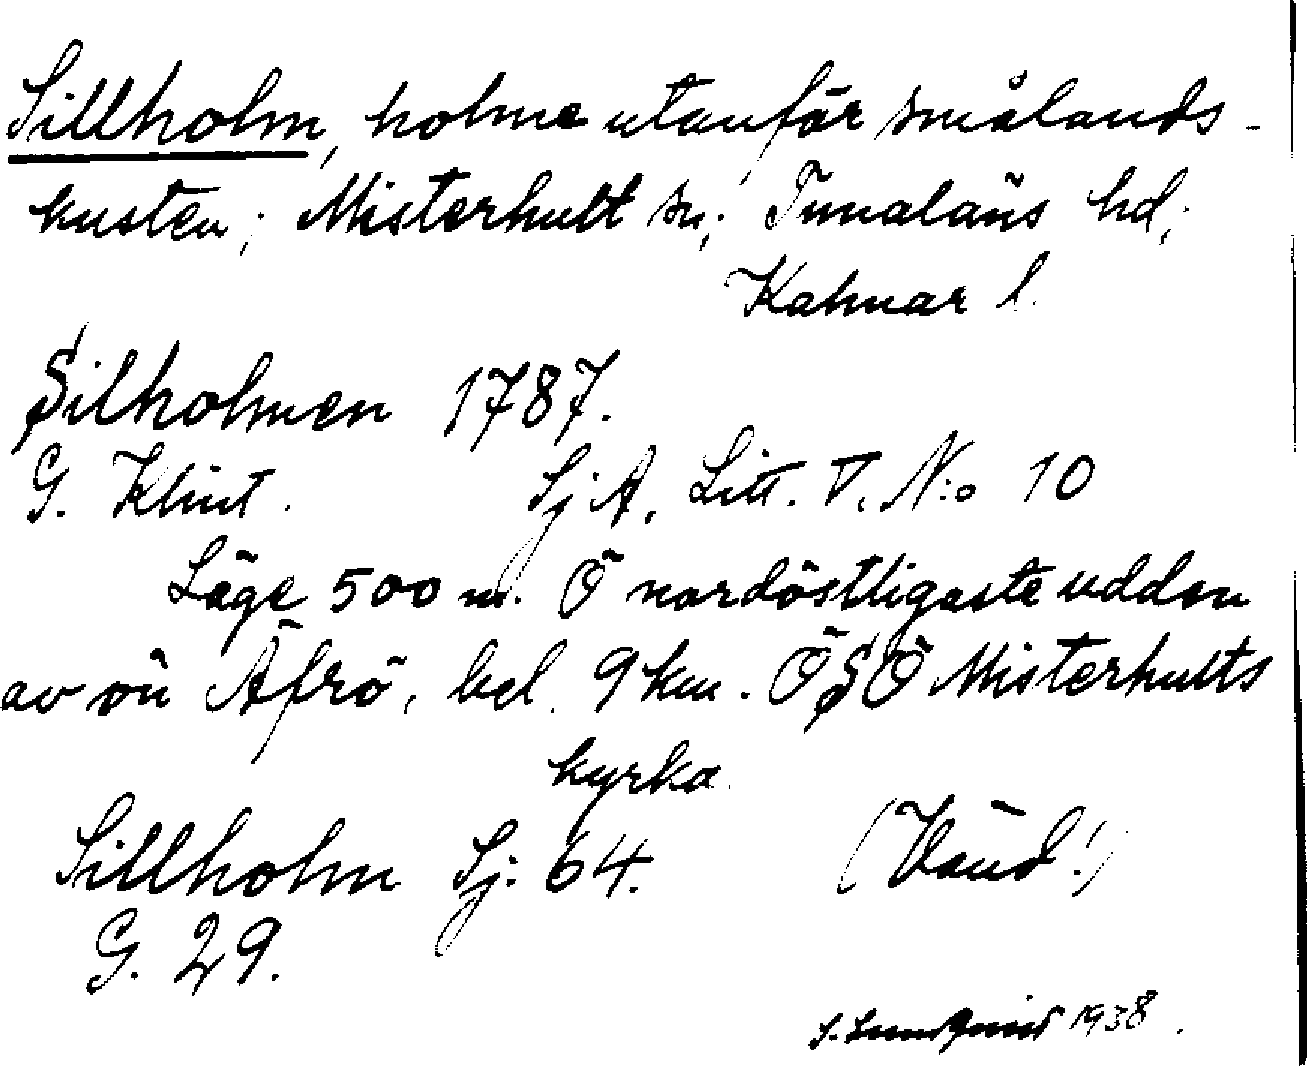 Sillholm, holme utanför smålands-
kusten; Misterhult sn; Tunaläns hd;
Kalmar l.
Silholmen 1787.
G. Klint. SjA. Litt. V. N:o 10
Läge 500 m. Ö nordöstligaste udden
av ön Äfrö, bel. 9 km. ÖSÖ Misterhults
kyrka.
Sillholm Sj. 64. (Vänd!)
G. 29.
S. Lundquist 1938.